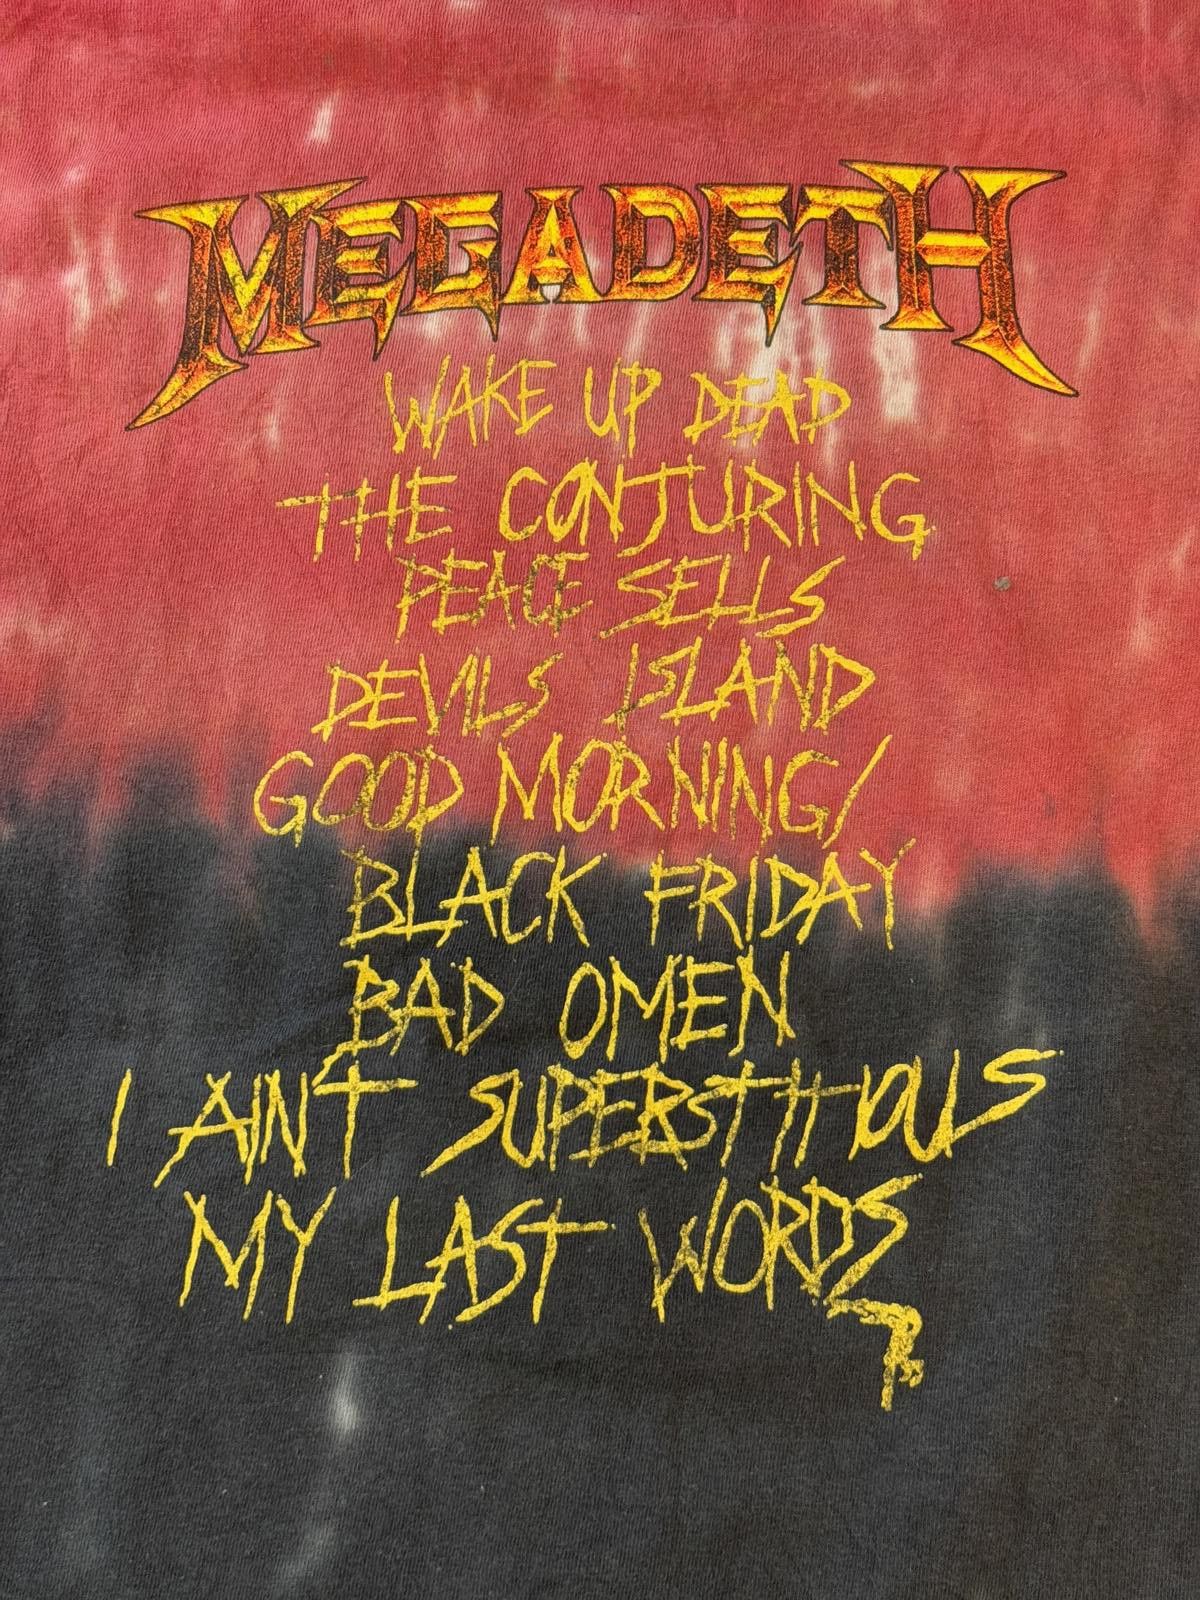 MEGADETH
WAKE UP DEAD
THE CONJURING
PEACE SELLS
DEVILS ISLAND
GOOD MORNING/
BLACK FRIDAY
BAD OMEN
I AIN'T SUPERSTITIOUS
MY LAST WORDS